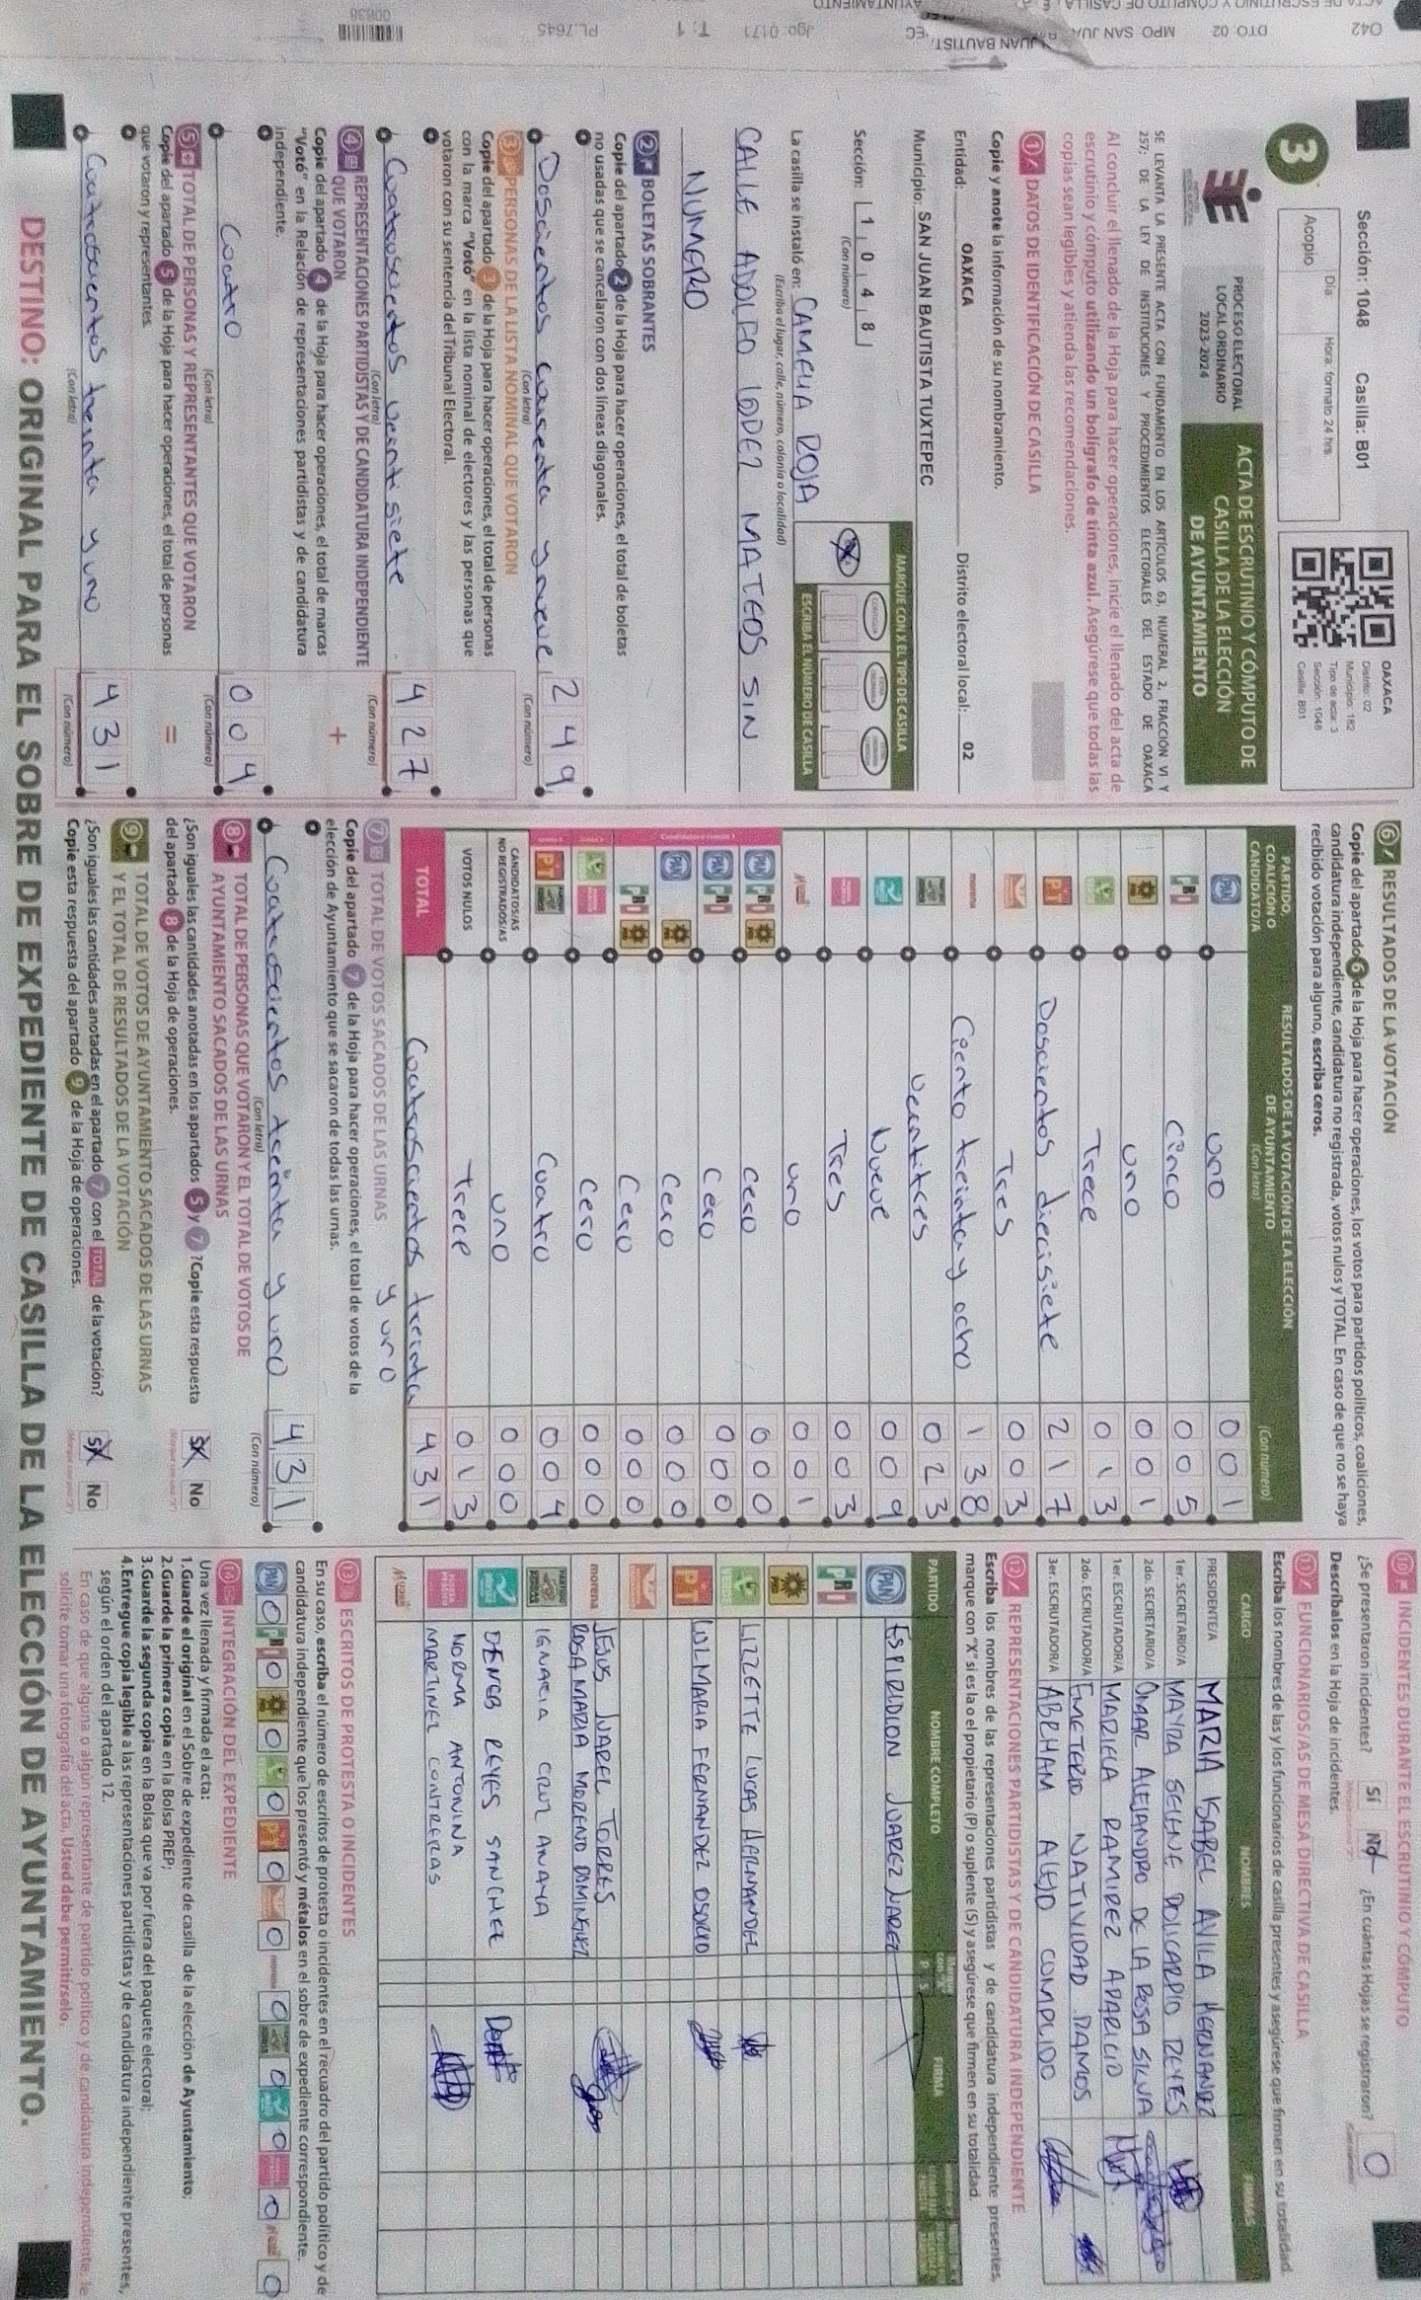 042 DTO. 02 MPO SAN JUA JUAN BAUTIST EC Jgo: 0171 T: 1 PL.7645
008638
Sección: 1048 Casilla: B01
3
Día Hora: formato 24 hrs.
Acopio
OAXACA
Distrito: 02
Municipio: 182
Tipo de acta: 3
Sección: 1048
Casilla: B01
PROCESO ELECTORAL
LOCAL ORDINARIO
2023-2024
ACTA DE ESCRUTINIO Y CÓMPUTO DE
CASILLA DE LA ELECCIÓN
DE AYUNTAMIENTO
SE LEVANTA LA PRESENTE ACTA CON FUNDAMENTO EN LOS ARTÍCULOS 63, NUMERAL 2, FRACCIÓN VI Y
257; DE LA LEY DE INSTITUCIONES Y PROCEDIMIENTOS ELECTORALES DEL ESTADO DE OAXACA
Al concluir el llenado de la Hoja para hacer operaciones, inicie el llenado del acta de
escrutinio y cómputo utilizando un bolígrafo de tinta azul. Asegúrese que todas las
copias sean legibles y atienda las recomendaciones.
1 DATOS DE IDENTIFICACIÓN DE CASILLA
Copie y anote la información de su nombramiento.
Entidad: OAXACA Distrito electoral local: 02
Municipio: SAN JUAN BAUTISTA TUXTEPEC
Sección: 1 0 4 8
(Con número)
MARQUE CON X EL TIPO DE CASILLA
ESCRIBA EL NÚMERO DE CASILLA
La casilla se instaló en: CAMELIA ROJA
(Escriba el lugar, calle, número, colonia o localidad)
CALLE ADOLFO LOPEZ MATEOS SIN
NUMERO
2 BOLETAS SOBRANTES
Copie del apartado 2 de la Hoja para hacer operaciones, el total de boletas
no usadas que se cancelaron con dos líneas diagonales.
Doscientos cuarenta y nueve 249
(Con letra) (Con número)
3 PERSONAS DE LA LISTA NOMINAL QUE VOTARON
Copie del apartado 3 de la Hoja para hacer operaciones, el total de personas
con la marca "Votó" en la lista nominal de electores y las personas que
votaron con su sentencia del Tribunal Electoral.
Cuatrocientos veintisiete 427
(Con letra) (Con número)
4 REPRESENTACIONES PARTIDISTAS Y DE CANDIDATURA INDEPENDIENTE
QUE VOTARON +
Copie del apartado 4 de la Hoja para hacer operaciones, el total de marcas
"Votó" en la Relación de representaciones partidistas y de candidatura
independiente.
Cuatro 004
(Con letra) (Con número)
5 TOTAL DE PERSONAS Y REPRESENTANTES QUE VOTARON =
Copie del apartado 5 de la Hoja para hacer operaciones, el total de personas
que votaron y representantes.
Cuatrocientos treinta y uno 431
(Con letra) (Con número)
6 RESULTADOS DE LA VOTACIÓN
Copie del apartado 6 de la Hoja para hacer operaciones, los votos para partidos políticos, coaliciones,
candidatura independiente, candidatura no registrada, votos nulos y TOTAL. En caso de que no se haya
recibido votación para alguno, escriba ceros.
PARTIDO, COALICIÓN O CANDIDATO/A
RESULTADOS DE LA VOTACIÓN DE LA ELECCIÓN DE AYUNTAMIENTO
(Con letra) (Con número)
PAN uno 001
PRI cinco 005
uno 001
Trece 013
PT Doscientos diecisiete 217
Tres 003
morena Ciento treinta y ocho 138
veintitres 023
Nueve 009
Tres 003
uno 001
PAN PRI cero 000
PAN PRI Cero 000
PAN Cero 000
PRI Cero 000
cero 000
PT Cuatro 004
CANDIDATOS/AS NO REGISTRADOS/AS uno 000
VOTOS NULOS Trece 013
TOTAL Cuatroscientos treinta y uno 431
7 TOTAL DE VOTOS SACADOS DE LAS URNAS
Copie del apartado 7 de la Hoja para hacer operaciones, el total de votos de la
elección de Ayuntamiento que se sacaron de todas las urnas.
Cuatroscientos treinta y uno 431
(Con letra) (Con número)
8 TOTAL DE PERSONAS QUE VOTARON Y EL TOTAL DE VOTOS DE
AYUNTAMIENTO SACADOS DE LAS URNAS
¿Son iguales las cantidades anotadas en los apartados 5 y 7? Copie esta respuesta
del apartado 8 de la Hoja de operaciones. Sí No
9 TOTAL DE VOTOS DE AYUNTAMIENTO SACADOS DE LAS URNAS
Y EL TOTAL DE RESULTADOS DE LA VOTACIÓN
¿Son iguales las cantidades anotadas en el apartado 7 con el TOTAL de la votación?
Copie esta respuesta del apartado 9 de la Hoja de operaciones. Sí No
10 INCIDENTES DURANTE EL ESCRUTINIO Y CÓMPUTO
¿Se presentaron incidentes? Sí No ¿En cuántas Hojas se registraron? 0
Descríbalos en la Hoja de incidentes.
11 FUNCIONARIOS/AS DE MESA DIRECTIVA DE CASILLA
Escriba los nombres de las y los funcionarios de casilla presentes y asegúrese que firmen en su totalidad.
CARGO NOMBRES FIRMAS
PRESIDENTE/A MARIA ISABEL AVILA HERNANDEZ
1er. SECRETARIO/A MAYRA SELENE POLICARPIO REYES
2do. SECRETARIO/A OMAR ALEJANDRO DE LA ROSA SILVA
1er. ESCRUTADOR/A MARIELA RAMIREZ APARICIO
2do. ESCRUTADOR/A EMETERIO NATIVIDAD RAMOS
3er. ESCRUTADOR/A ABRHAM ALEJO COMPLIDO
12 REPRESENTACIONES PARTIDISTAS Y DE CANDIDATURA INDEPENDIENTE
Escriba los nombres de las representaciones partidistas y de candidatura independiente presentes,
marque con "X" si es la o el propietario (P) o suplente (S) y asegúrese que firmen en su totalidad.
PARTIDO NOMBRE COMPLETO P S FIRMA
PAN ESPIRIDION JUAREZ JUAREZ
PRI
LIZZETTE LUCAS HERNANDEZ
PT LULMARIA FERNANDEZ OSORIO
morena JESUS JUAREZ TORRES
ROSA MARIA MORENO DOMINGUEZ
IGNACIA CRUZ ANAYA
DENCB REYES SANCHEZ
NORMA ANTONINA
MARTINEZ CONTRERAS
13 ESCRITOS DE PROTESTA O INCIDENTES
En su caso, escriba el número de escritos de protesta o incidentes en el recuadro del partido político y de
candidatura independiente que los presentó y métalos en el sobre de expediente correspondiente.
PAN 0 PRI 0 0 0 PT 0 0 0 0 0 0 0
14 INTEGRACIÓN DEL EXPEDIENTE
Una vez llenada y firmada el acta:
1.Guarde el original en el Sobre de expediente de casilla de la elección de Ayuntamiento;
2.Guarde la primera copia en la Bolsa PREP;
3.Guarde la segunda copia en la Bolsa que va por fuera del paquete electoral;
4.Entregue copia legible a las representaciones partidistas y de candidatura independiente presentes,
según el orden del apartado 12.
En caso de que alguna o algún representante de partido político y de candidatura independiente, le
solicite tomar una fotografía del acta, Usted debe permitírselo.
DESTINO: ORIGINAL PARA EL SOBRE DE EXPEDIENTE DE CASILLA DE LA ELECCIÓN DE AYUNTAMIENTO.